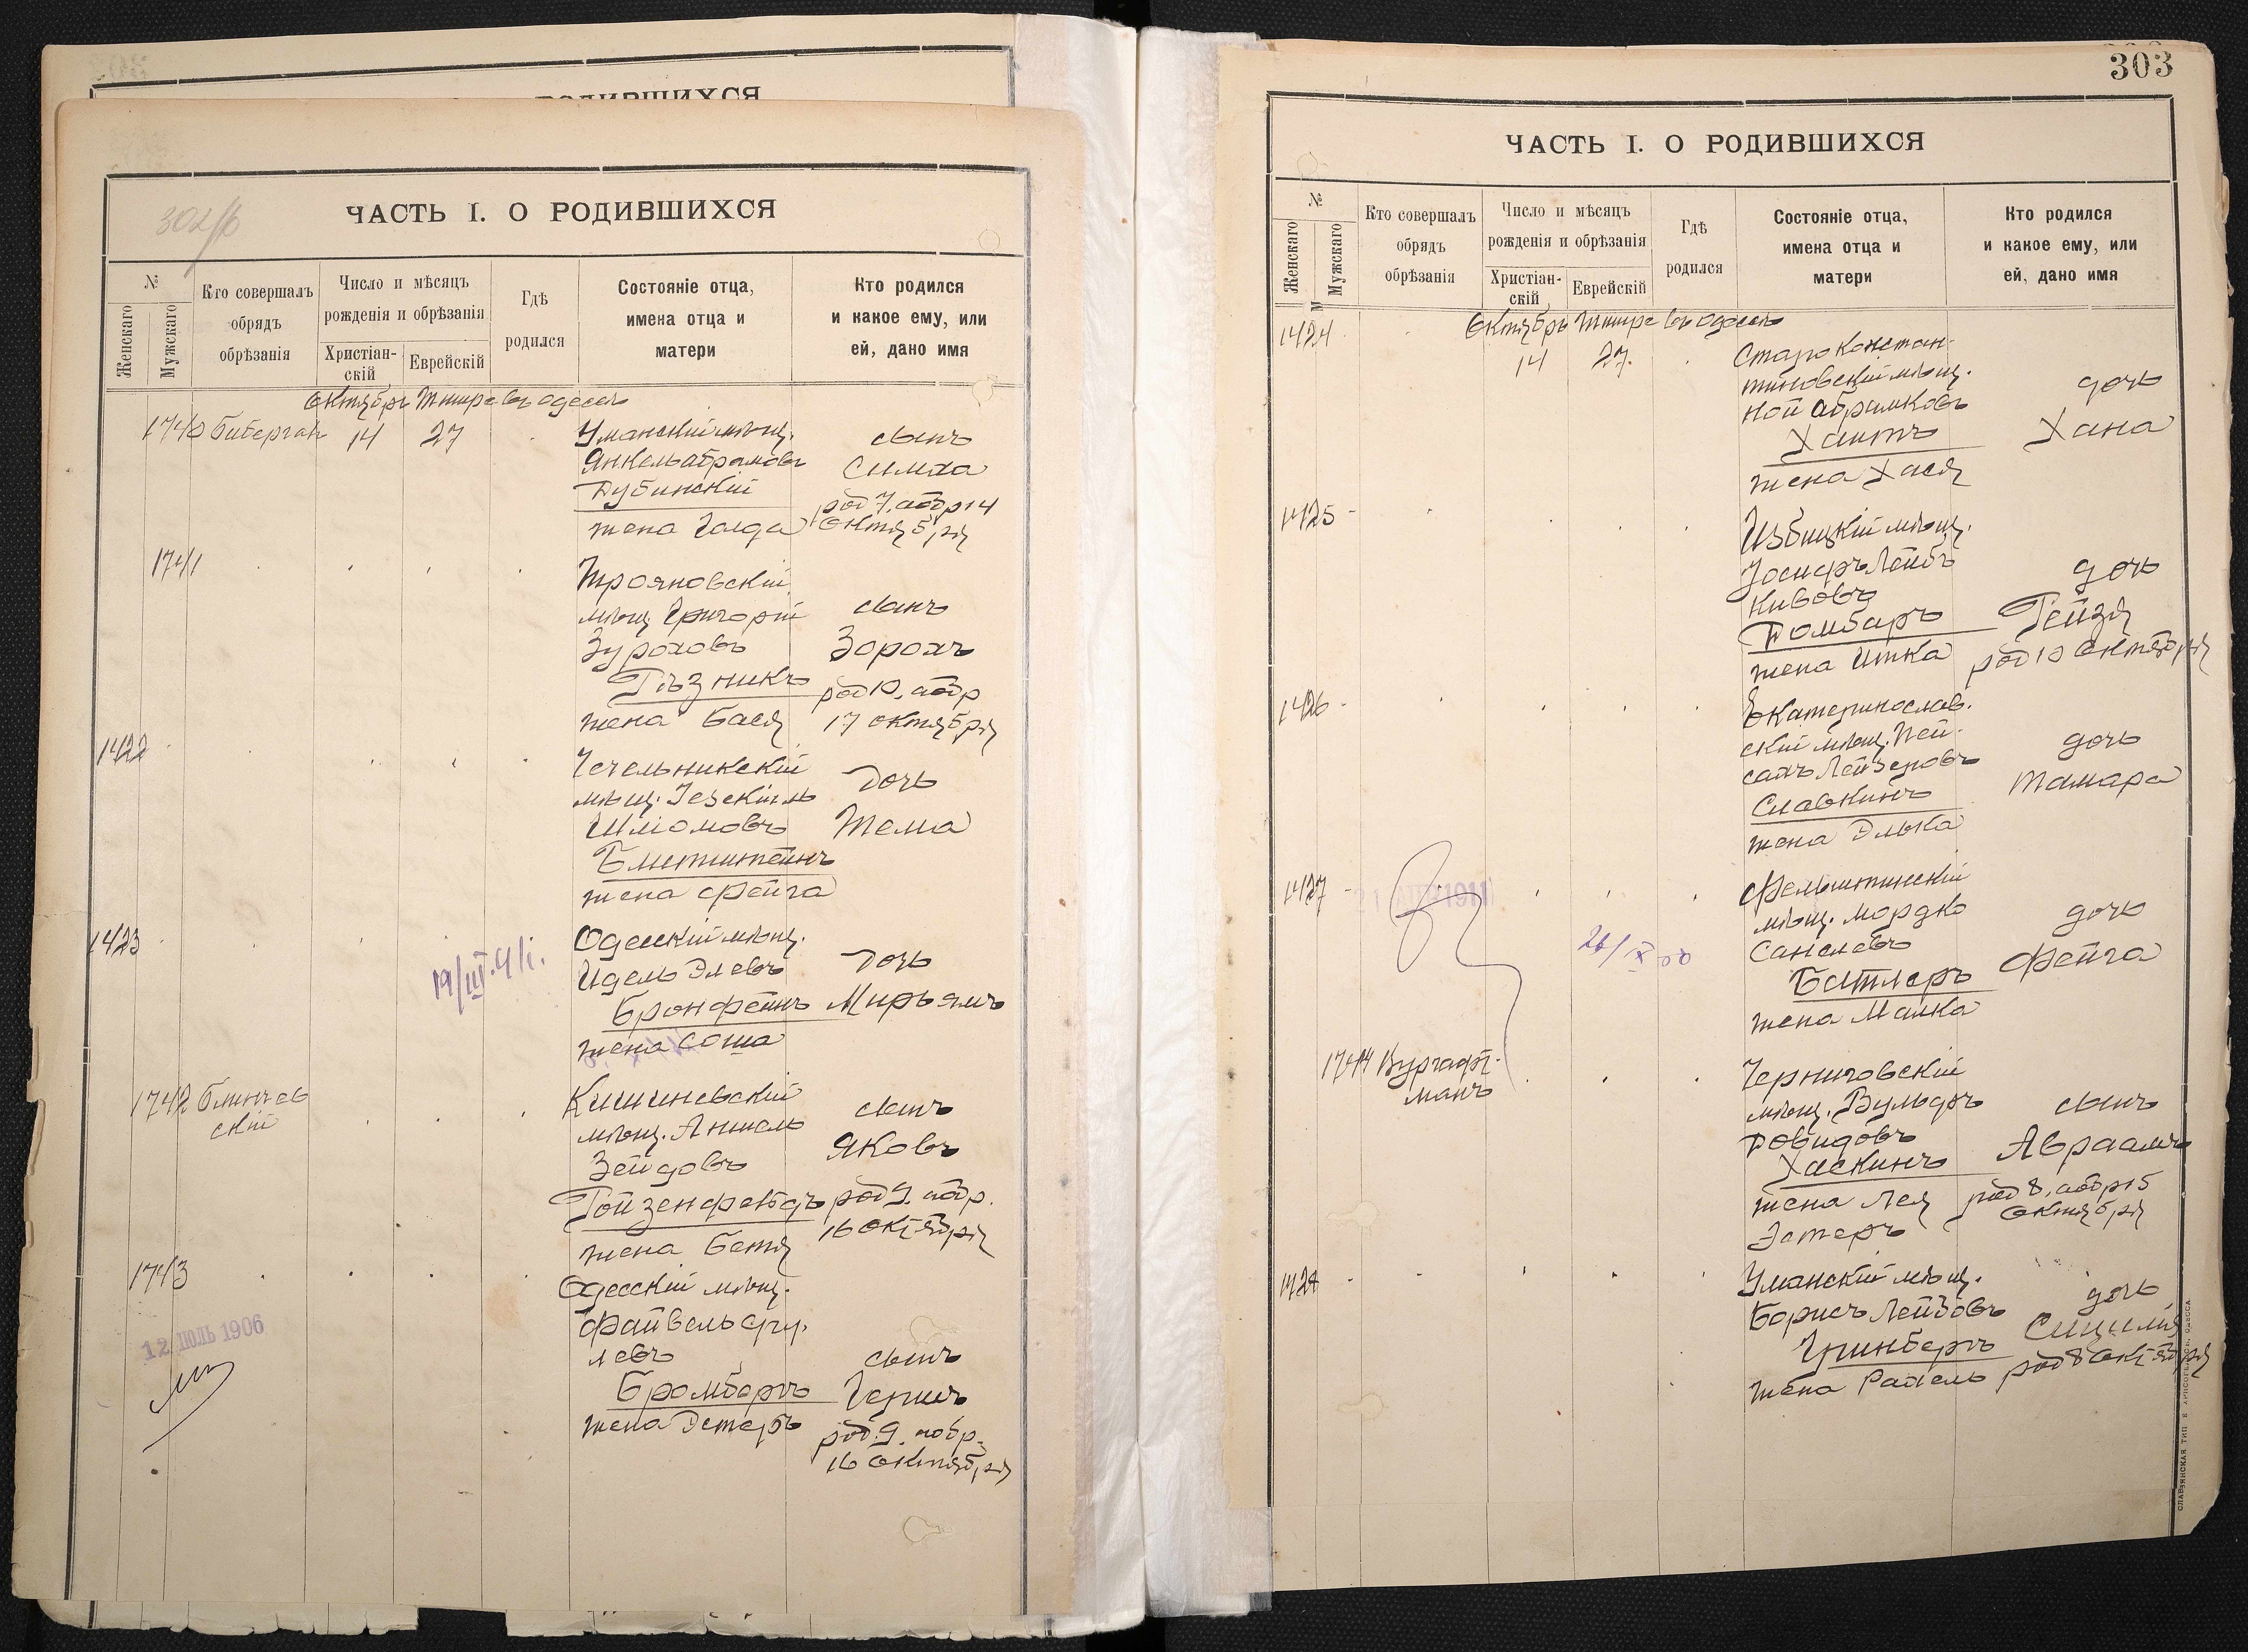 РОДИВШИХСЯ
302/б
ЧАСТЬ I. О РОДИВШИХСЯ
№
Женскаго
Мужскаго
Кто совершалъ
обрядъ
обрѣзанія
Число и мѣсяцъ
рожденія и обрѣзанія
Христіан-
скій
Еврейскій
Гдѣ
родился
Состояніе отца,
имена отца и
матери
Кто родился
и какое ему, или
ей, дано имя
Октябрь Тишре въ Одессѣ
1740 Биберган 14 27
Уманскій мѣщ.
Янкель Абрамовъ
Дубинскій
жена Голда
сынъ
Симха
род 7. аобр 14
Октября
1741
Трояновскій
мѣщ Григорій
Зуроховъ
Гвѣзникъ
жена Бася
сынъ
Зорохъ
род 10. аобр
17 октября
1422
Чечельникскій
мѣщ. Іезекіиль
Шліомовъ
Блитштейнъ
жена Фейга
дочь
Тема
1423
19/III.41г.
Одесскій мѣщ.
Идель Элевъ
Бронфейнъ
жена Соша
дочь
Мирьямъ
1742 Блинчев
скій
Кишиневскій
мѣщ. Аншель
Зейдовъ
Гойзенфельдъ
жена Бетя
сынъ
Яковъ
род 9. аобр.
16 Октября
1743
12 ІЮЛЬ 1906
Одесскій мѣщ.
Файвель Сру-
левъ
Бромбергъ
жена Эстеръ
сынъ
Гершъ
род. 9. аобр.
16 Октября
303
ЧАСТЬ I. О РОДИВШИХСЯ
№
Женскаго
Мужскаго
Кто совершалъ
обрядъ
обрѣзанія
Число и мѣсяцъ
рожденія и обрѣзанія
Христіан-
скій
Еврейскій
Гдѣ
родился
Состояніе отца,
имена отца и
матери
Кто родился
и какое ему, или
ей, дано имя
Октябрь Тишре въ Одессѣ
1424
14 27.
Староконстан-
тиновскій мѣщ.
Ной Абрамковъ
Хаитъ
жена Хася
дочь
Хана
1425
Избицкій мѣщ.
Іосифъ Лейбъ
Кивовъ
Домбаръ
жена Итка
дочь
Рейзя
род 10 Октября
1426
Екатеринослав-
скій мѣщ. Пей-
сахъ Лейзеровъ
Славкинъ
жена Элька
дочь
Тамара
1427
1911
Фельштинскій
мѣщ. Мордко
Санелевъ
Батлеръ
жена Малка
дочь
Фейга
1744 Вургафт-
манъ
Черниговскій
мѣщ. Вульфъ
Довидовъ
Хаскинъ
жена Лея
Эстеръ
сынъ
Авраамъ
род 8. аобр 15
Октября
1428
Уманскій мѣщ.
Борисъ Лейбовъ
Гринбергъ
жена Рахель
дочь
Сицилія
род 8 Октября